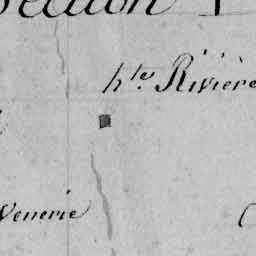 Section
h.te Rivière
Venerie